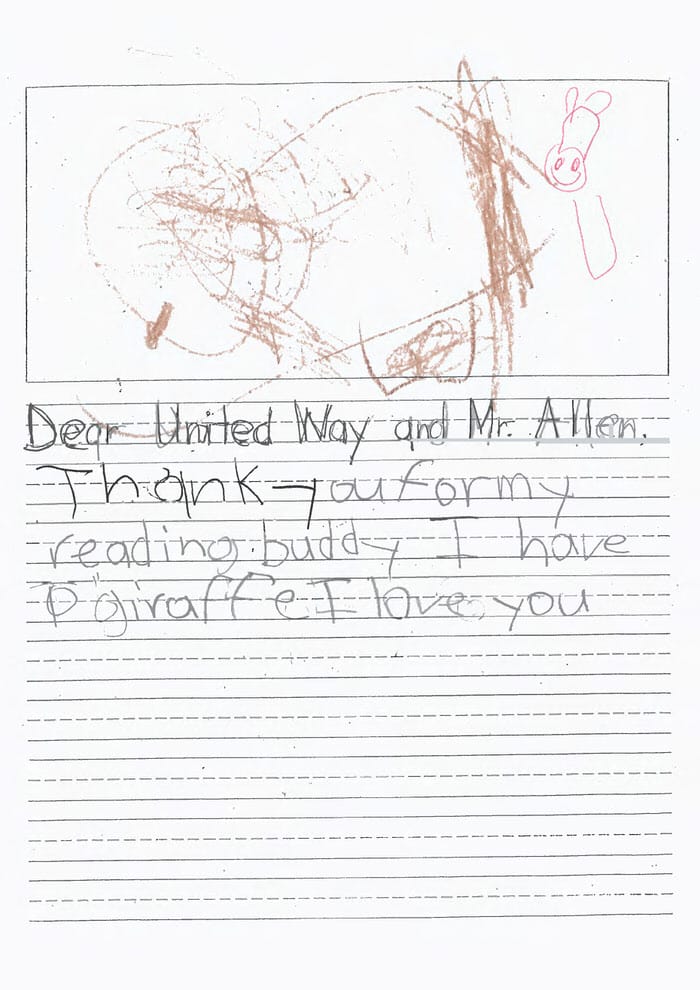 Dear United Way and Mr. Allen.
Thank you for my
reading buddy I have
giraffe I love you